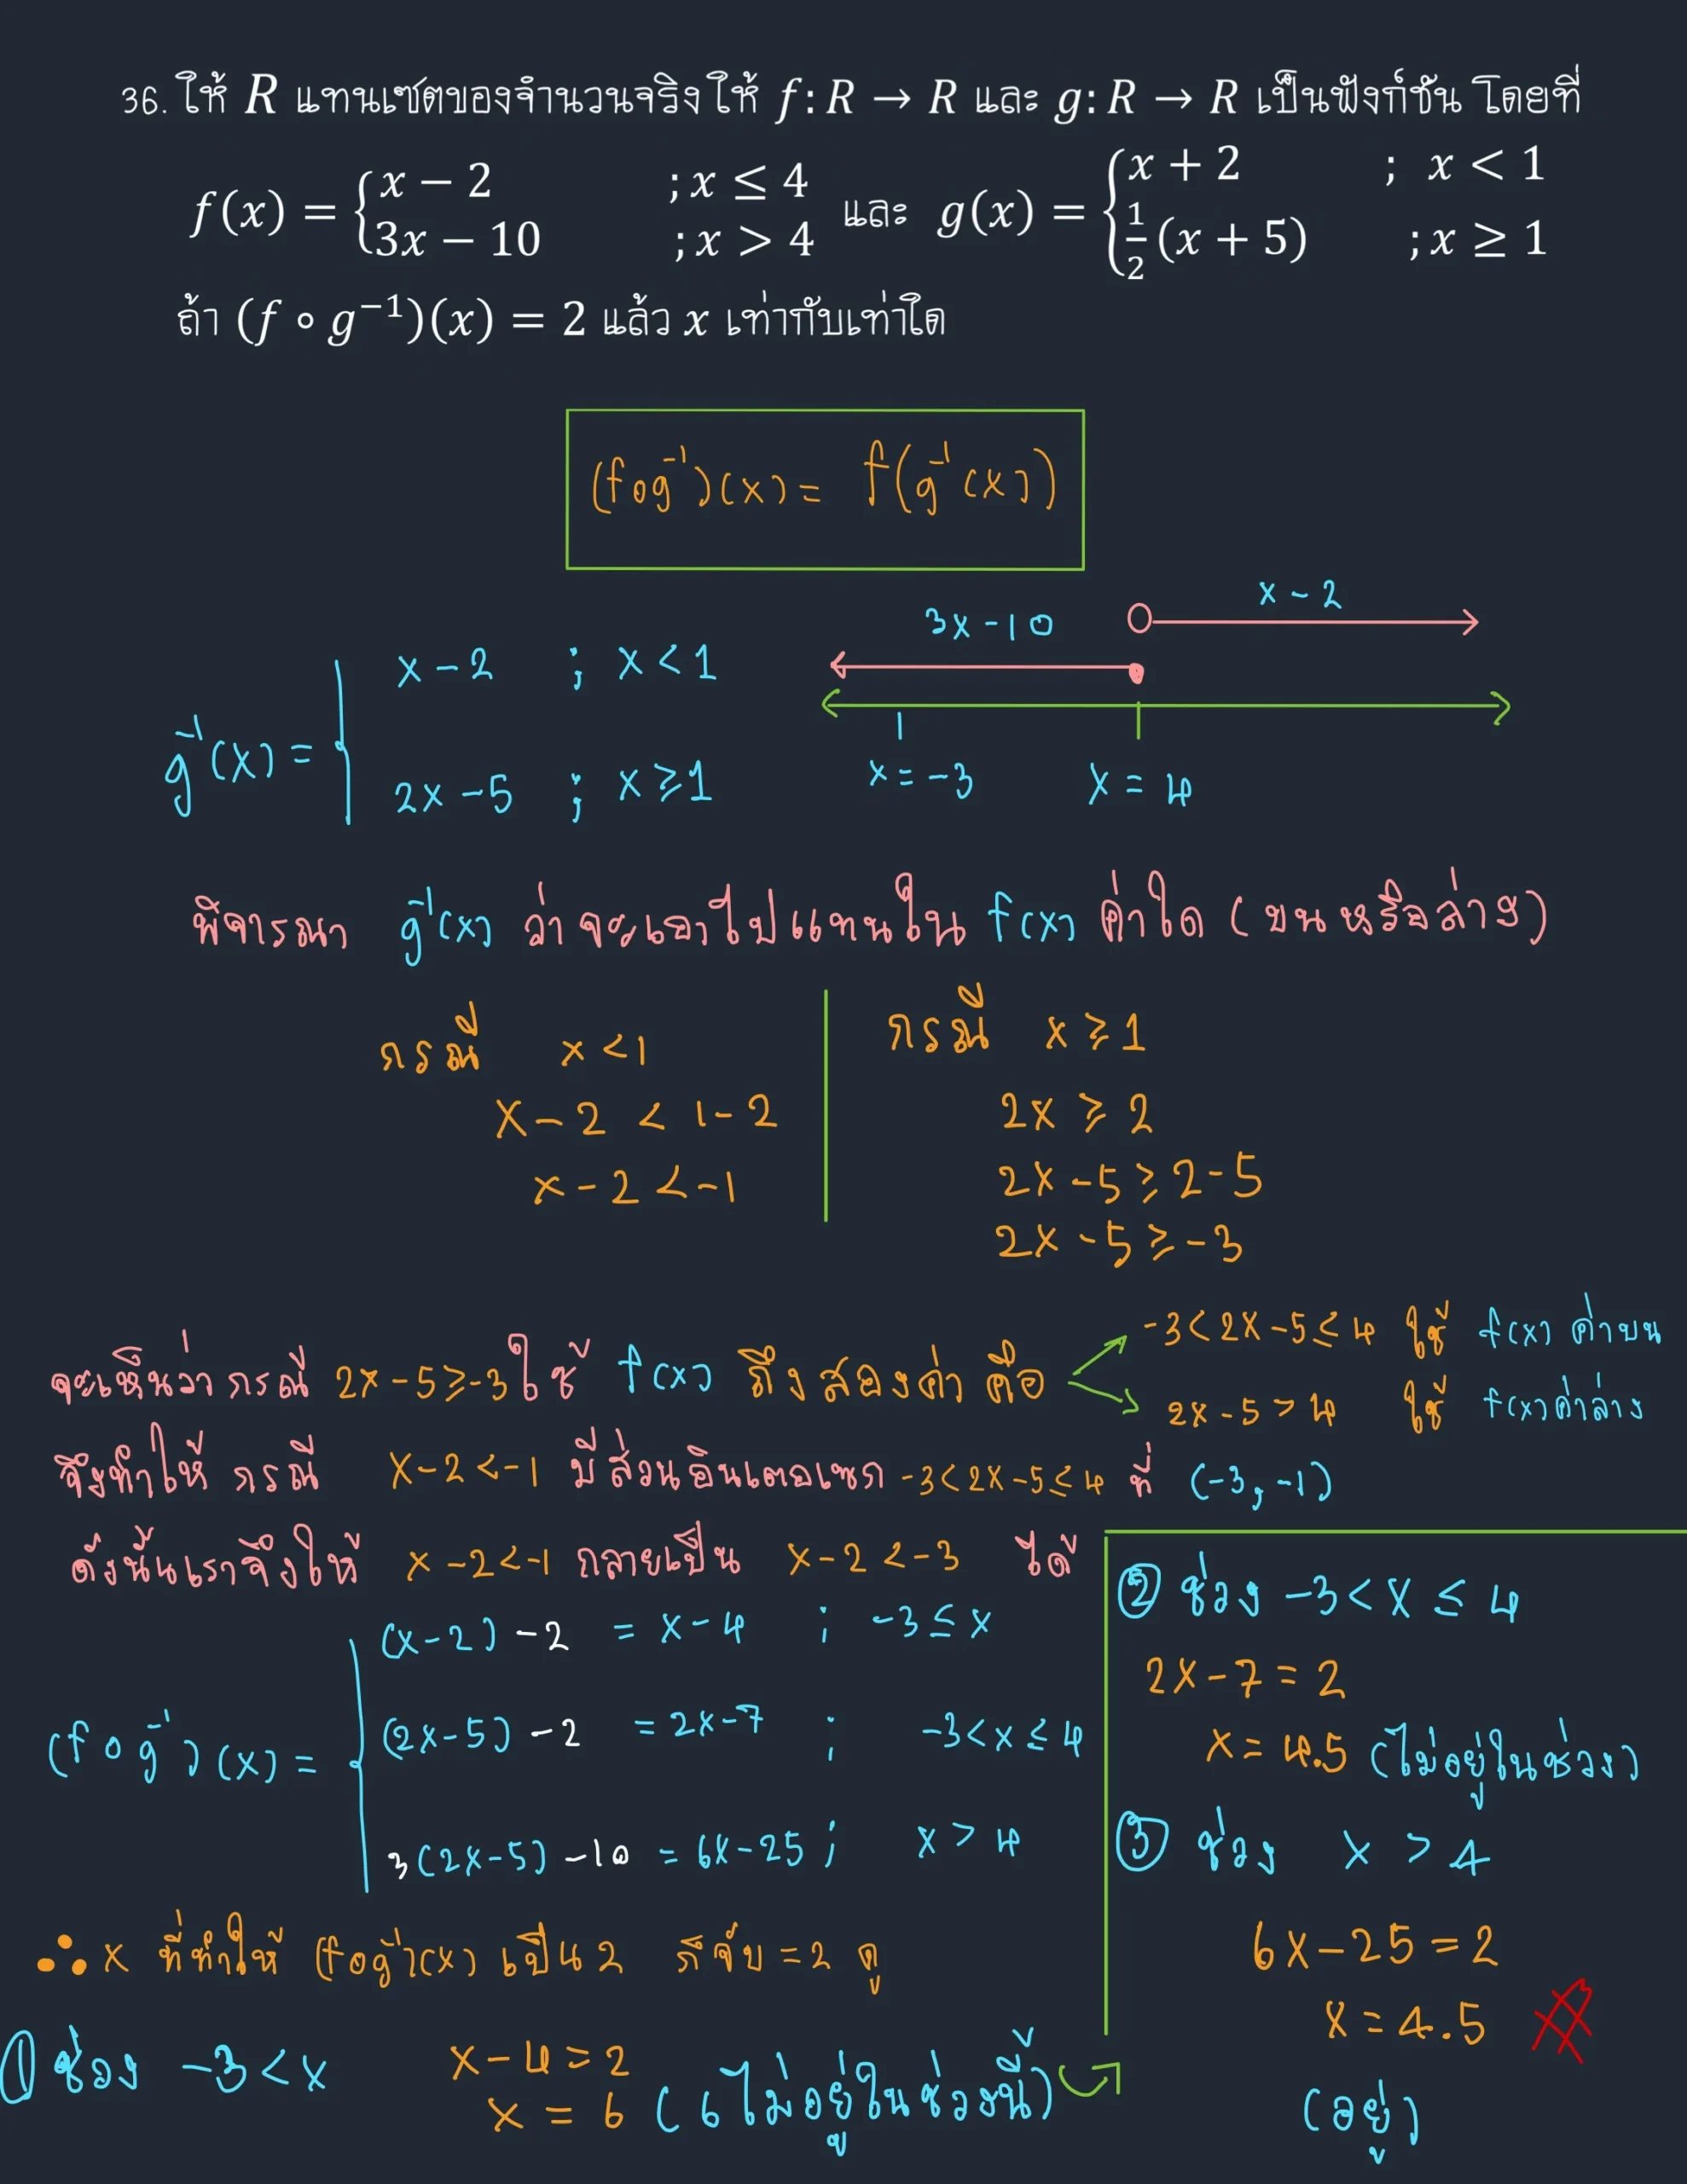 36. ให้ R แทนเซตของจำนวนจริง ให้ f: R → R และ g: R → R เป็นฟังก์ชัน โดยที่
f(x) = { x − 2 ; x ≤ 4
3x − 10 ; x > 4
และ g(x) = { x + 2 ; x < 1
1/2 (x + 5) ; x ≥ 1
ถ้า (f ∘ g⁻¹)(x) = 2 แล้ว x เท่ากับเท่าใด
(fog⁻¹)(x) = f(g⁻¹(x))
g⁻¹(x) = { x − 2 ; x < 1
2x − 5 ; x ≥ 1
3x − 10
x − 2
x = −3
x = 4
พิจารณา g⁻¹(x) ว่าจะเอาไปแทนใน f(x) ค่าใด (บนหรือล่าง)
กรณี x < 1
x − 2 < 1 − 2
x − 2 < −1
กรณี x ≥ 1
2x ≥ 2
2x − 5 ≥ 2 − 5
2x − 5 ≥ −3
จะเห็นว่า กรณี 2x − 5 ≥ −3 ใช้ f(x) ถึงสองค่า คือ
−3 < 2x − 5 ≤ 4 ใช้ f(x) ค่าบน
2x − 5 > 4 ใช้ f(x) ค่าล่าง
จึงทำให้ กรณี x − 2 < −1 มีส่วนอินเตอเซก −3 < 2x − 5 ≤ 4 ที่ (−3, −1)
ดังนั้นเราจึงให้ x − 2 < −1 กลายเป็น x − 2 < −3 ได้
(fog⁻¹)(x) = { (x − 2) − 2 = x − 4 ; −3 ≤ x
(2x − 5) − 2 = 2x − 7 ; −3 < x ≤ 4
3(2x − 5) − 10 = 6x − 25 ; x > 4
∴ x ที่ทำให้ (fog⁻¹)(x) เป็น 2 ก็จับ = 2 ดู
① ช่วง −3 < x
x − 4 = 2
x = 6 (6 ไม่อยู่ในช่วงนี้)
② ช่วง −3 < x ≤ 4
2x − 7 = 2
x = 4.5 (ไม่อยู่ในช่วง)
③ ช่วง x > 4
6x − 25 = 2
x = 4.5
(อยู่)